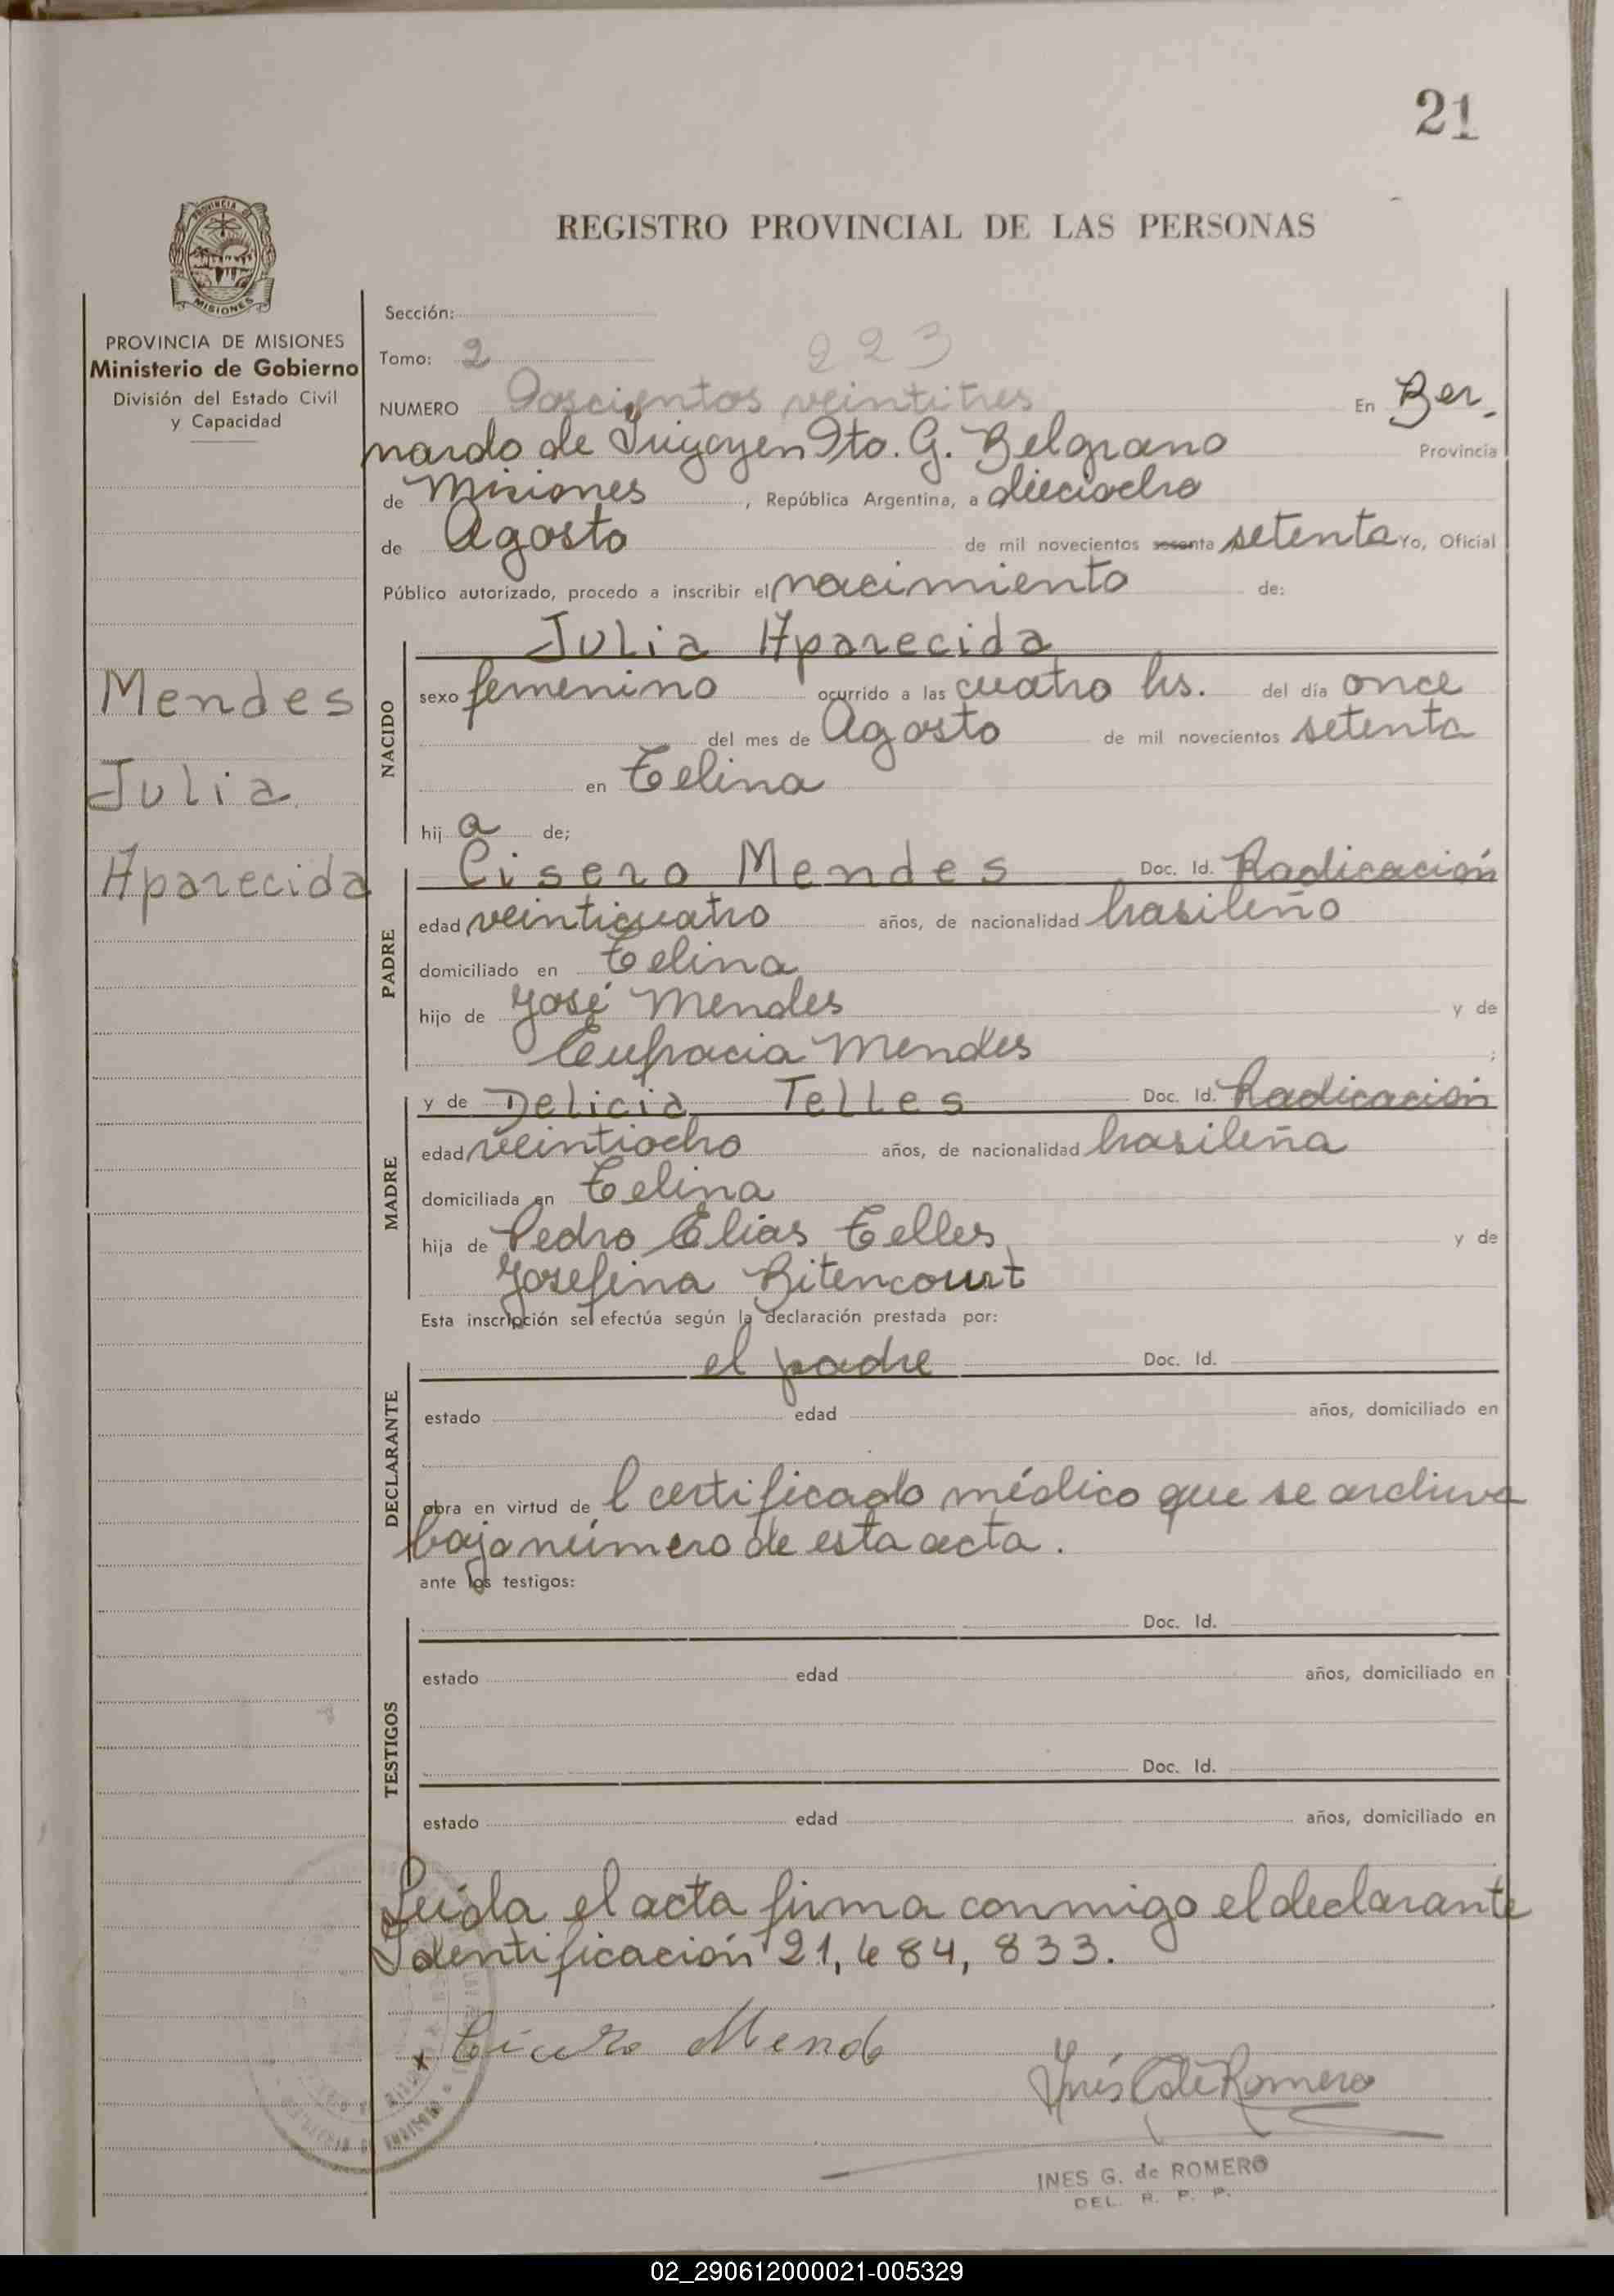 21
REGISTRO PROVINCIAL DE LAS PERSONAS
PROVINCIA DE
MISIONES
PROVINCIA DE MISIONES
Ministerio de Gobierno
División del Estado Civil
y Capacidad
Mendes
Julia
Aparecida
Sección:
Tomo: 2 223
NUMERO Doscientos veintitres En Ber-
nardo de Irigoyen Dto. G. Belgrano Provincia
de Misiones, República Argentina, a dieciocho
de Agosto de mil novecientos sesenta setenta Yo, Oficial
Público autorizado, procedo a inscribir el nacimiento de:
Julia Aparecida
NACIDO
sexo femenino ocurrido a las cuatro hs. del día once
del mes de Agosto de mil novecientos setenta
en Telina
hij a de;
PADRE
Cisero Mendes Doc. Id. Radicación
edad veinticuatro años, de nacionalidad brasileño
domiciliado en Telina
hijo de José Mendes y de
Eufracia Mendes ;
MADRE
y de Delicia Telles Doc. Id. Radicación
edad veintiocho años, de nacionalidad brasileña
domiciliada en Telina
hija de Pedro Elias Telles y de
Josefina Bitencourt
Esta inscripción se efectúa según la declaración prestada por:
DECLARANTE
el padre Doc. Id.
estado edad años, domiciliado en
obra en virtud de l certificado médico que se archiva
bajo número de esta acta.
ante los testigos:
TESTIGOS
Doc. Id.
estado edad años, domiciliado en
Doc. Id.
estado edad años, domiciliado en
Leída el acta firma conmigo el declarante
Identificación 21,484,833.
x Mend
Inés G de Romero
INES G. de ROMERO
DEL. R. P. P.
02_290612000021-005329